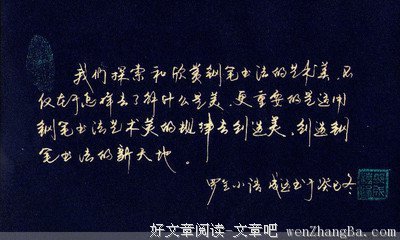 我们探索和欣赏钢笔书法的艺术美，不
仅在于怎样去了解什么是美，更重要的是运用
钢笔书法艺术美的规律去创造美，创造钢
笔书法的新天地。
罗兰小语 成运书于癸巳冬
好文章阅读-文章吧 wenZhangBa.com